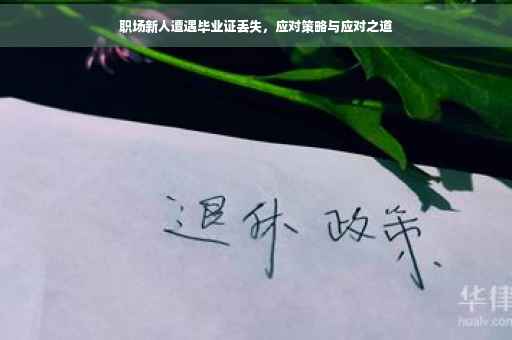 职场新人遭遇毕业证丢失，应对策略与应对之道
退休 政策
华律
hualv.com